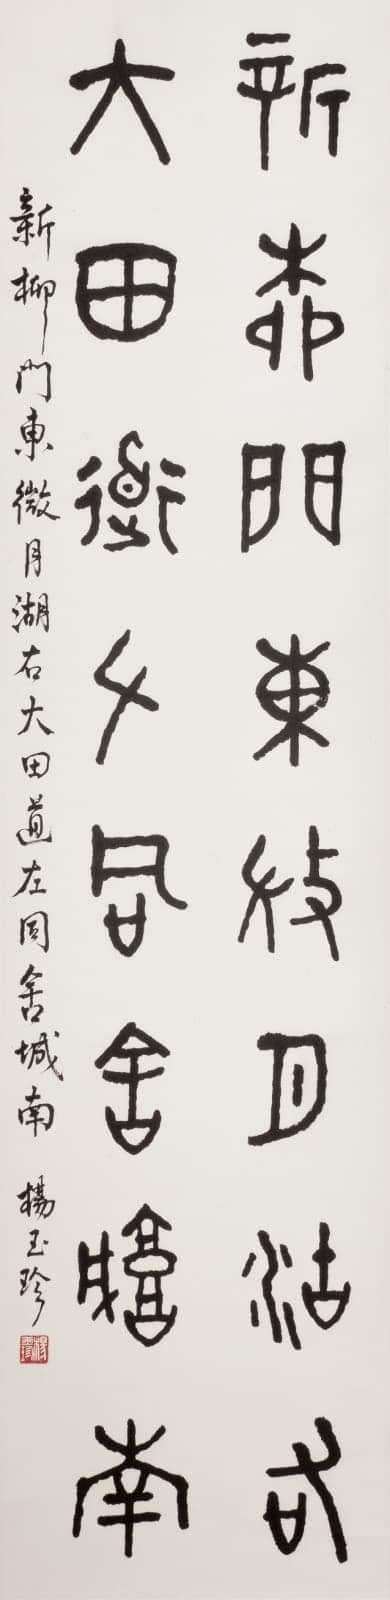 新柳門東微月湖右
大田道左同舍城南
新柳門東微月湖右大田道左同舍城南 楊玉珍